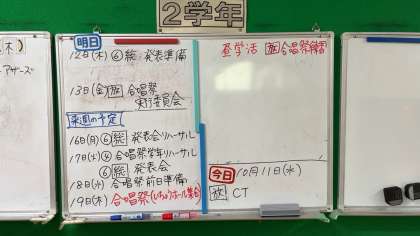 2学年
木)
アザーズ
明日
12日(木)⑥総 発表準備
13日(金)放 合唱祭
実行委員会
来週の予定
16日(月)⑥総 発表会リハーサル
17日(火)④合唱祭学年リハーサル
⑥総 発表会
18日(水) 合唱祭前日準備
19日(木) 合唱祭(いちょうホール集合)
昼学活 放 合唱祭練習
今日 10月11日(水)
放 CT